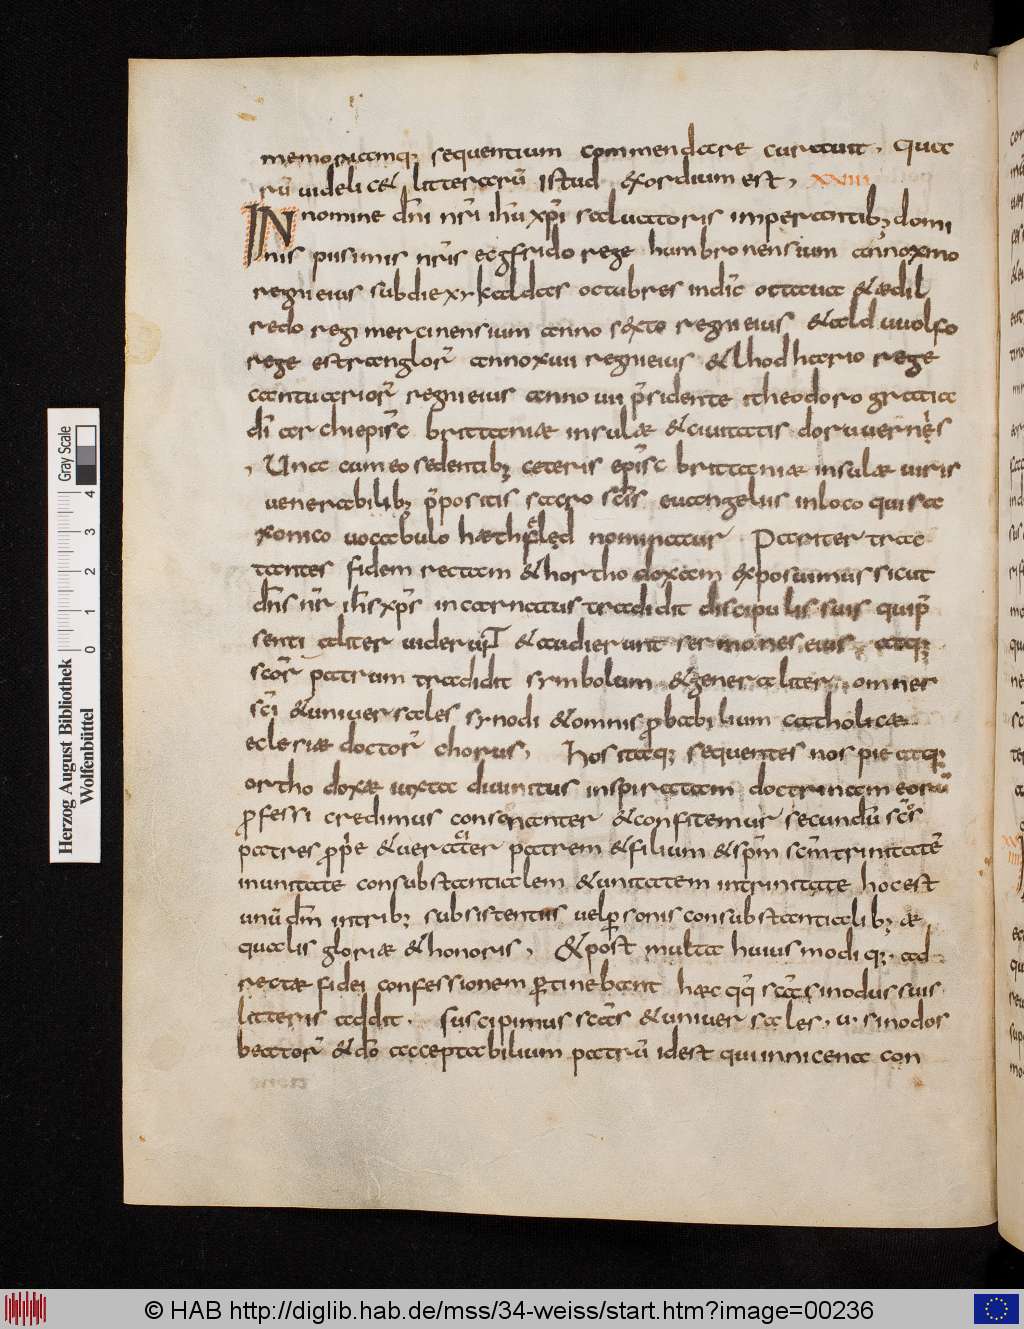 memoriamq; sequentium commendare curauit. Qua
rū uidelicet litterarū istud exordium est. XXIIII
IN nomine dn̄i nr̄i ih̄u xp̄i saluatoris imperantib; domi
nis piissimis nr̄is ecgfrido rege humbronensium anno x mo
regni eius sub die xv kaldas octubres indic̄ octaua & ædil
redo regi mercinensium anno sexto regni eius & alduuolfo
rege estranglor̄ anno xuii regni eius & lhodhario rege
cantuarior̄ regni eius anno uii p̄sidente theodoro gratia
dī archiepisc̄ brittaniæ insulæ & ciuitatis doruuernis
, Una cum eo sedentib; ceteris episc̄ brittaniæ insulæ uiris
uenerabilib; p̄positis sacro sc̄is euangeliis in loco qui sa
xonico uocabulo hæthfeled nominatur Pariter trac
tantes fidem rectam & hortho doxam exposuimus sicut
dn̄s nr̄ ih̄s xp̄s incarnatus tradidit discipulis suis qui p̄
senti aliter uiderunt & audierunt sermones eius. atq;
scor̄ patrum tradidit symbolum & generaliter omnes
sc̄i & uniuersales synodi & omnis probabilium catholicæ
eclesiæ doctor̄ chorus, hos itaq; sequentes nos pie atq;
ortho doxæ iuxta diuinitus inspiratam doctrinam eorū
professi credimus consonanter & confitemur secundū sc̄os
patres prop̄e & ueraciter patrem & filium & sp̄m sc̄m trinitatē
in unitate consubstantialem & unitatem in trinitate hoc est
unū dm̄ in trib; subsistentiis uel personis consubstantialib; æ
qualis gloriæ & honoris, & post multa huius modi q; ad
rectæ fidei confessionem pertinebant hæc qq; sc̄a sinodus suis
litteris addit. Suscipimus sc̄as & uniuersales. u. sinodos
beator̄ & dō acceptabilium patrū id est qui in nicena con
Herzog August Bibliothek
Wolfenbüttel
Gray Scale
0 1 2 3 4
© HAB http://diglib.hab.de/mss/34-weiss/start.htm?image=00236